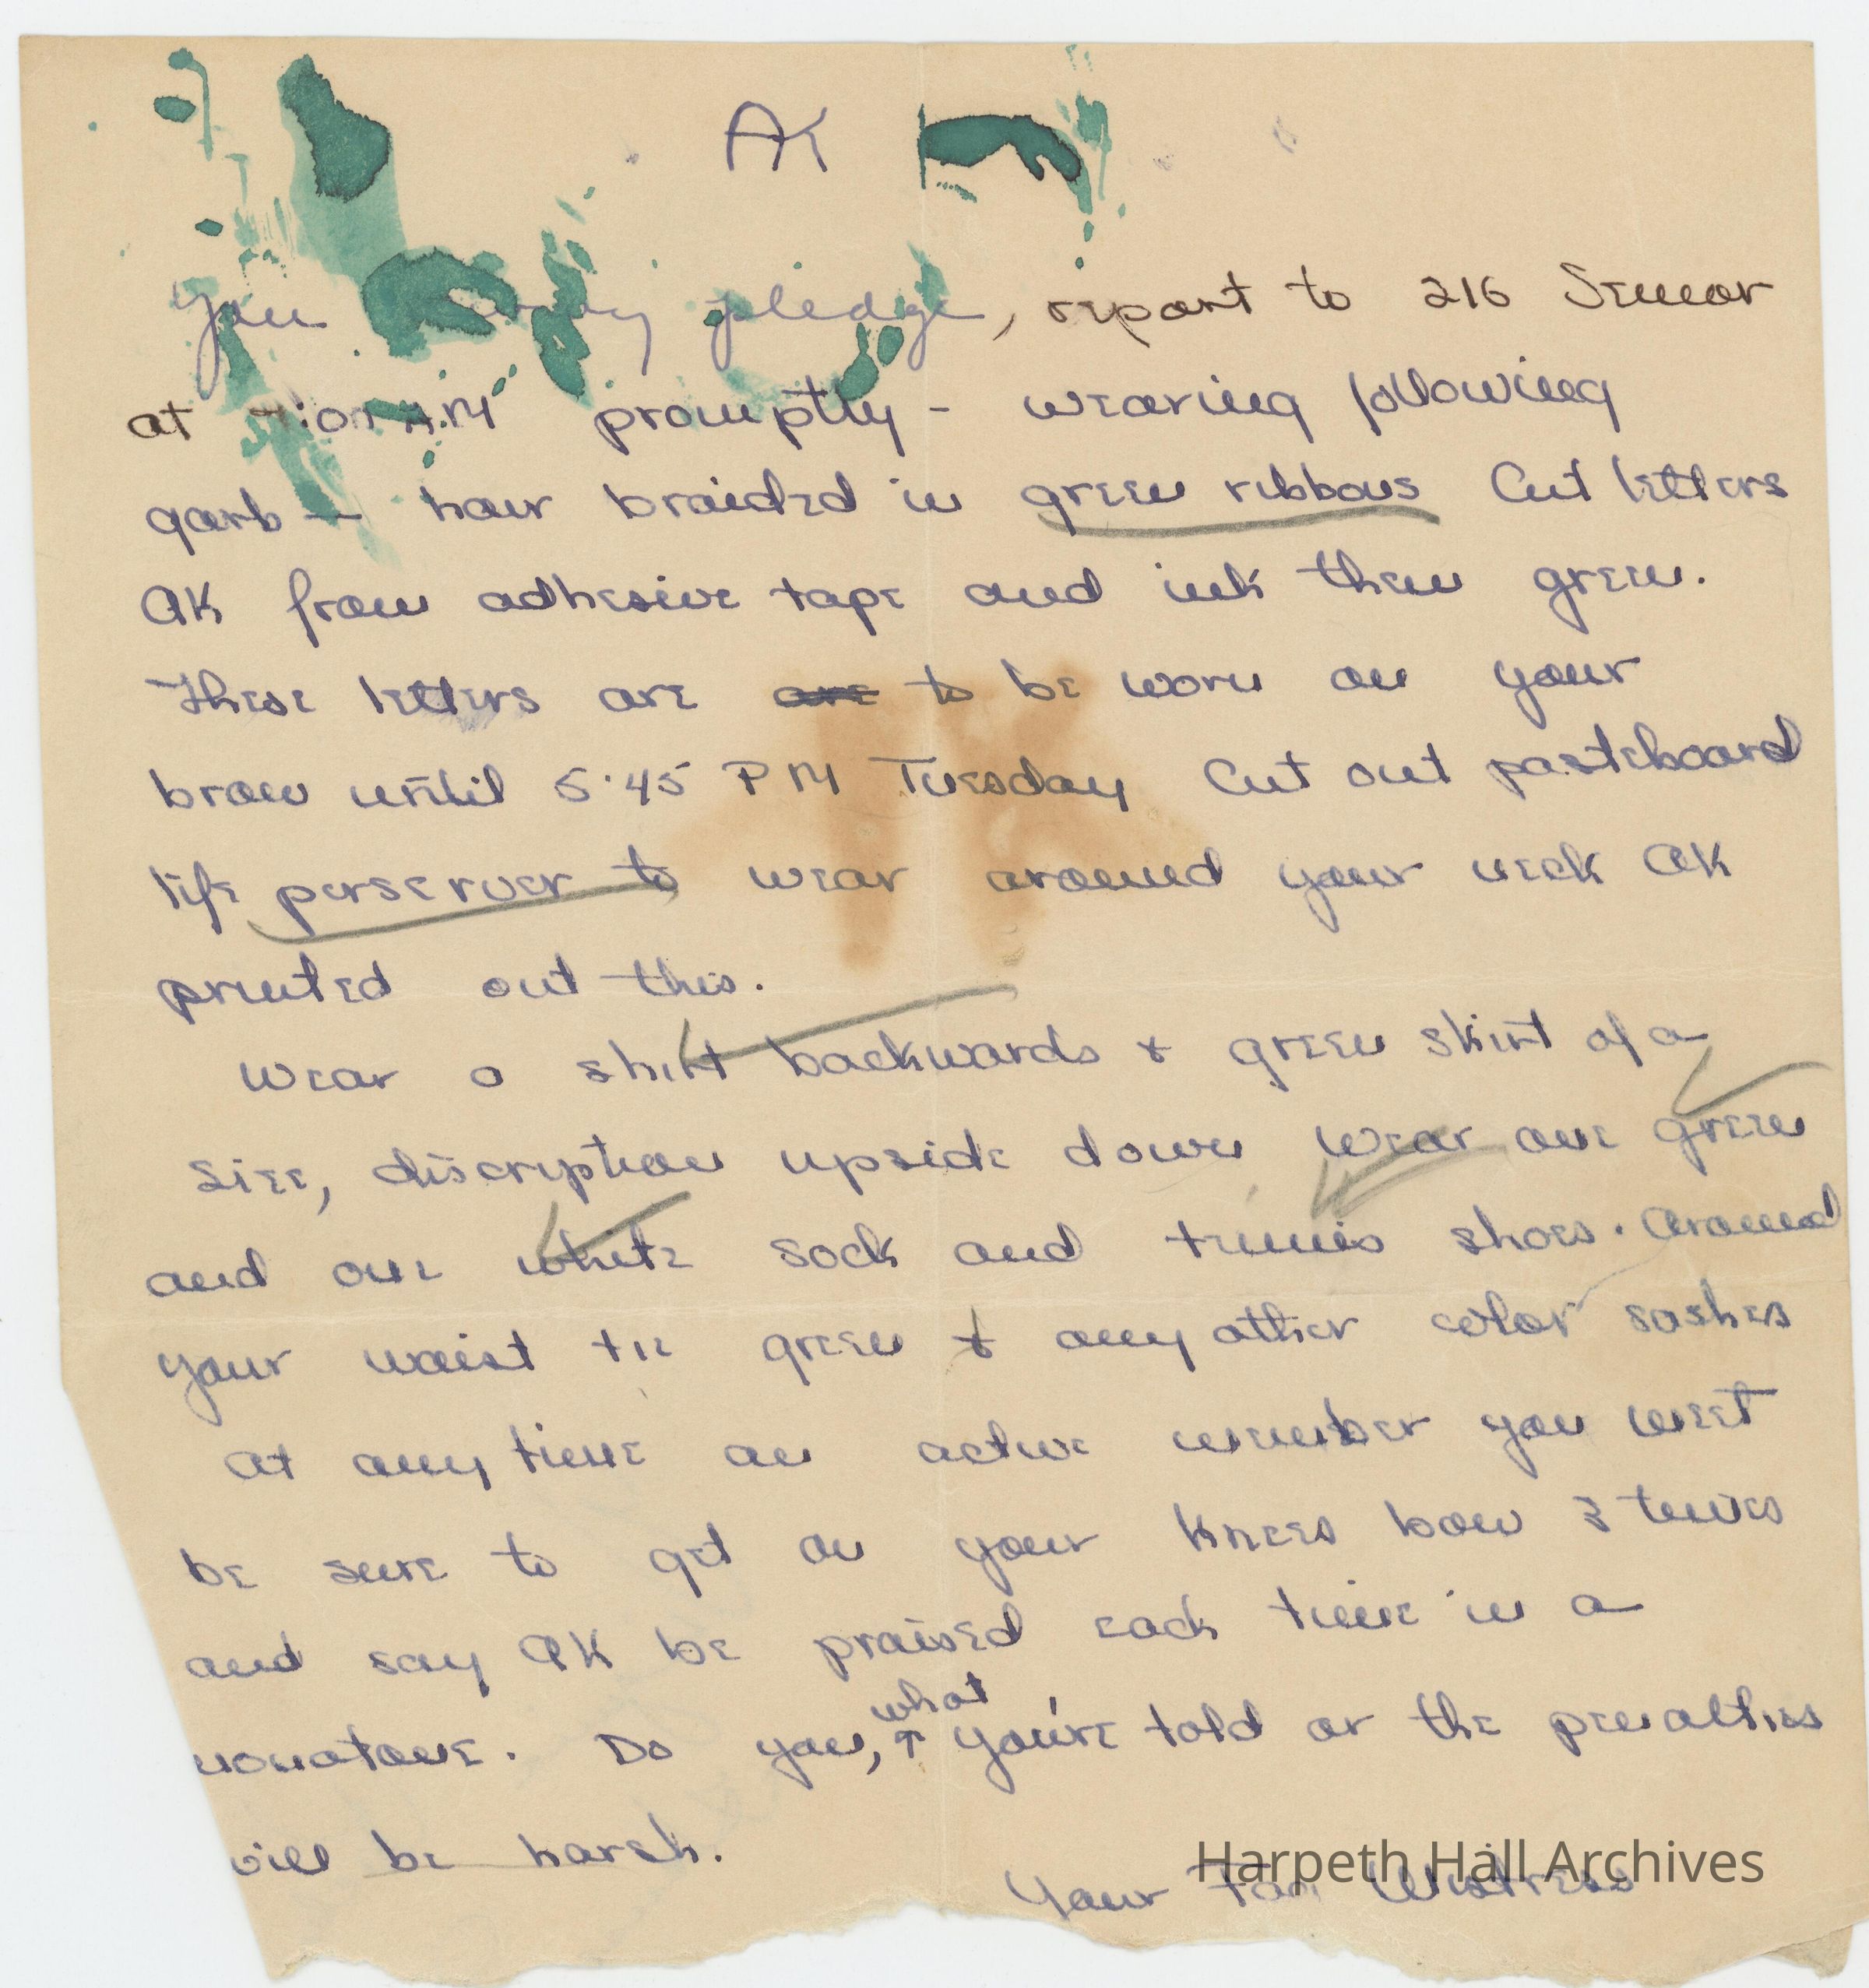 AK
You pledge, report to 216 Senior
at A.M promptly - wearing following
garb — hair braided in green ribbons Cut letters
AK from adhesive tape and ink them green.
These letters are are to be worn on your
brow until 5:45 PM Tuesday Cut out pasteboard
life perserver to wear around your neck AK
printed out this.
Wear a shirt backwards & green skirt of a
size, discription upside down Wear one green
and one white sock and tennis shoes. Around
your waist tie green & any other color sashes
At any time an active member you meet
be sure to get on your knees bow 3 times
and say AK be praised each time in a
monotone. Do you, what you're told or the penalties
will be harsh.
Your Mistress
Harpeth Hall Archives